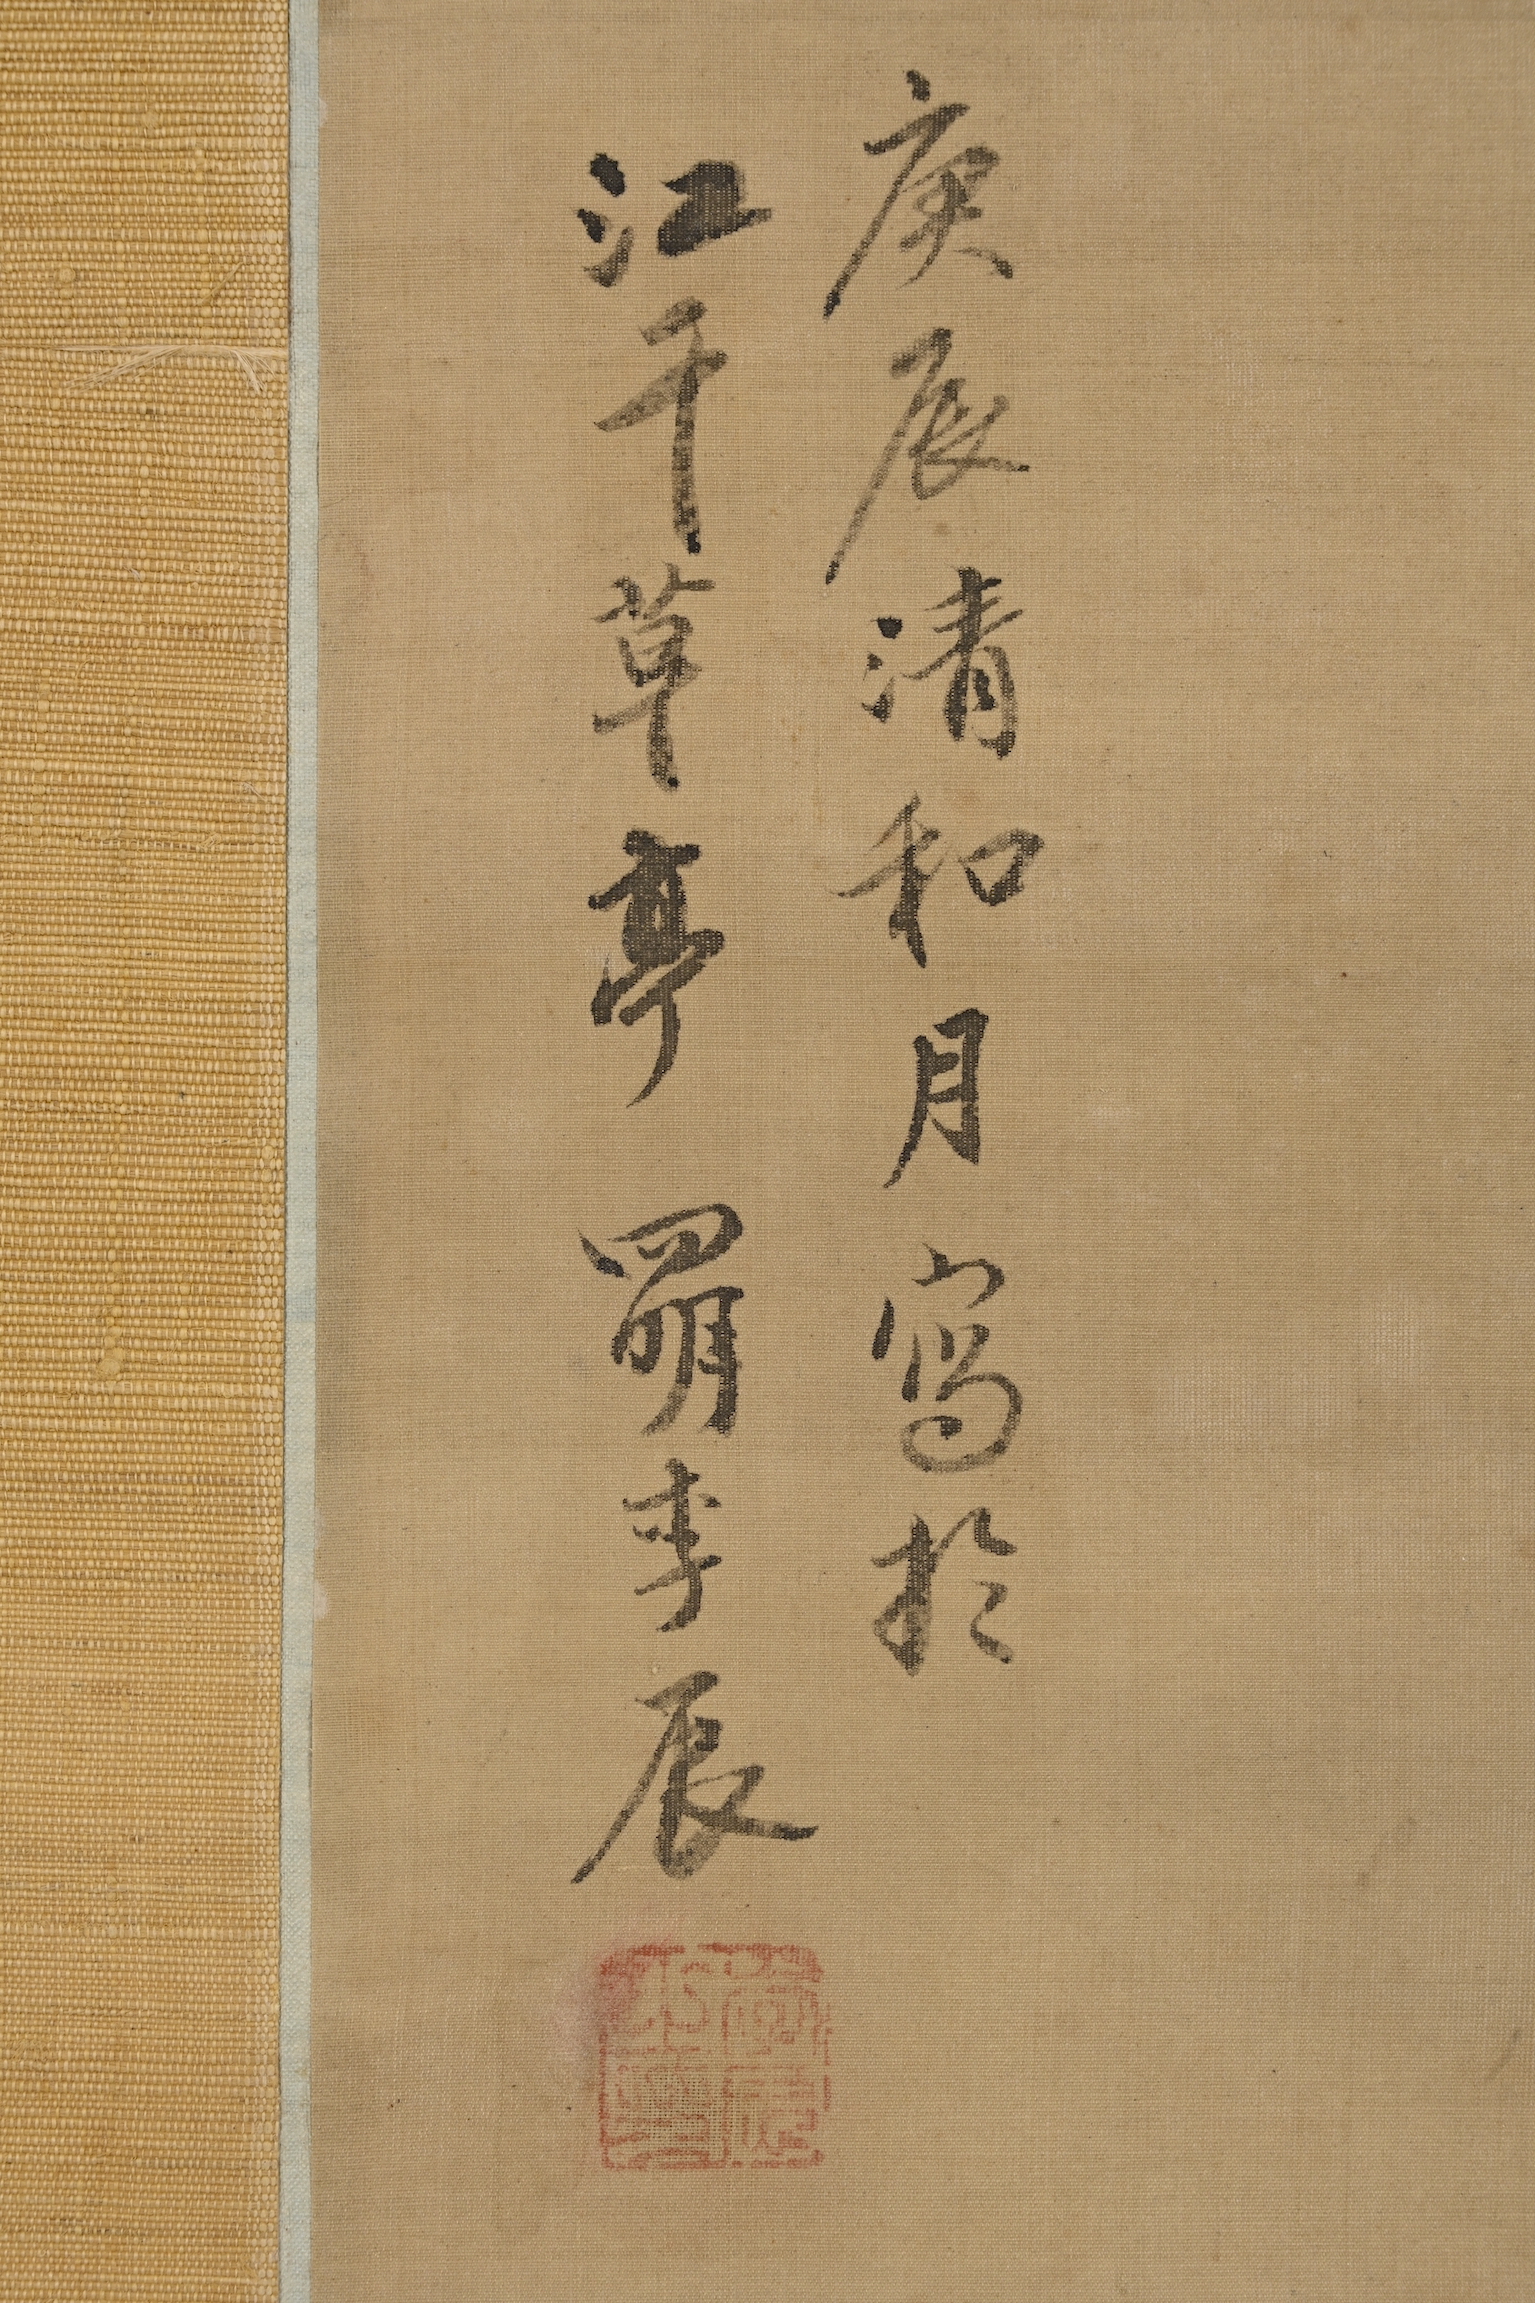 庚辰清和月寫於
江干草亭 李辰